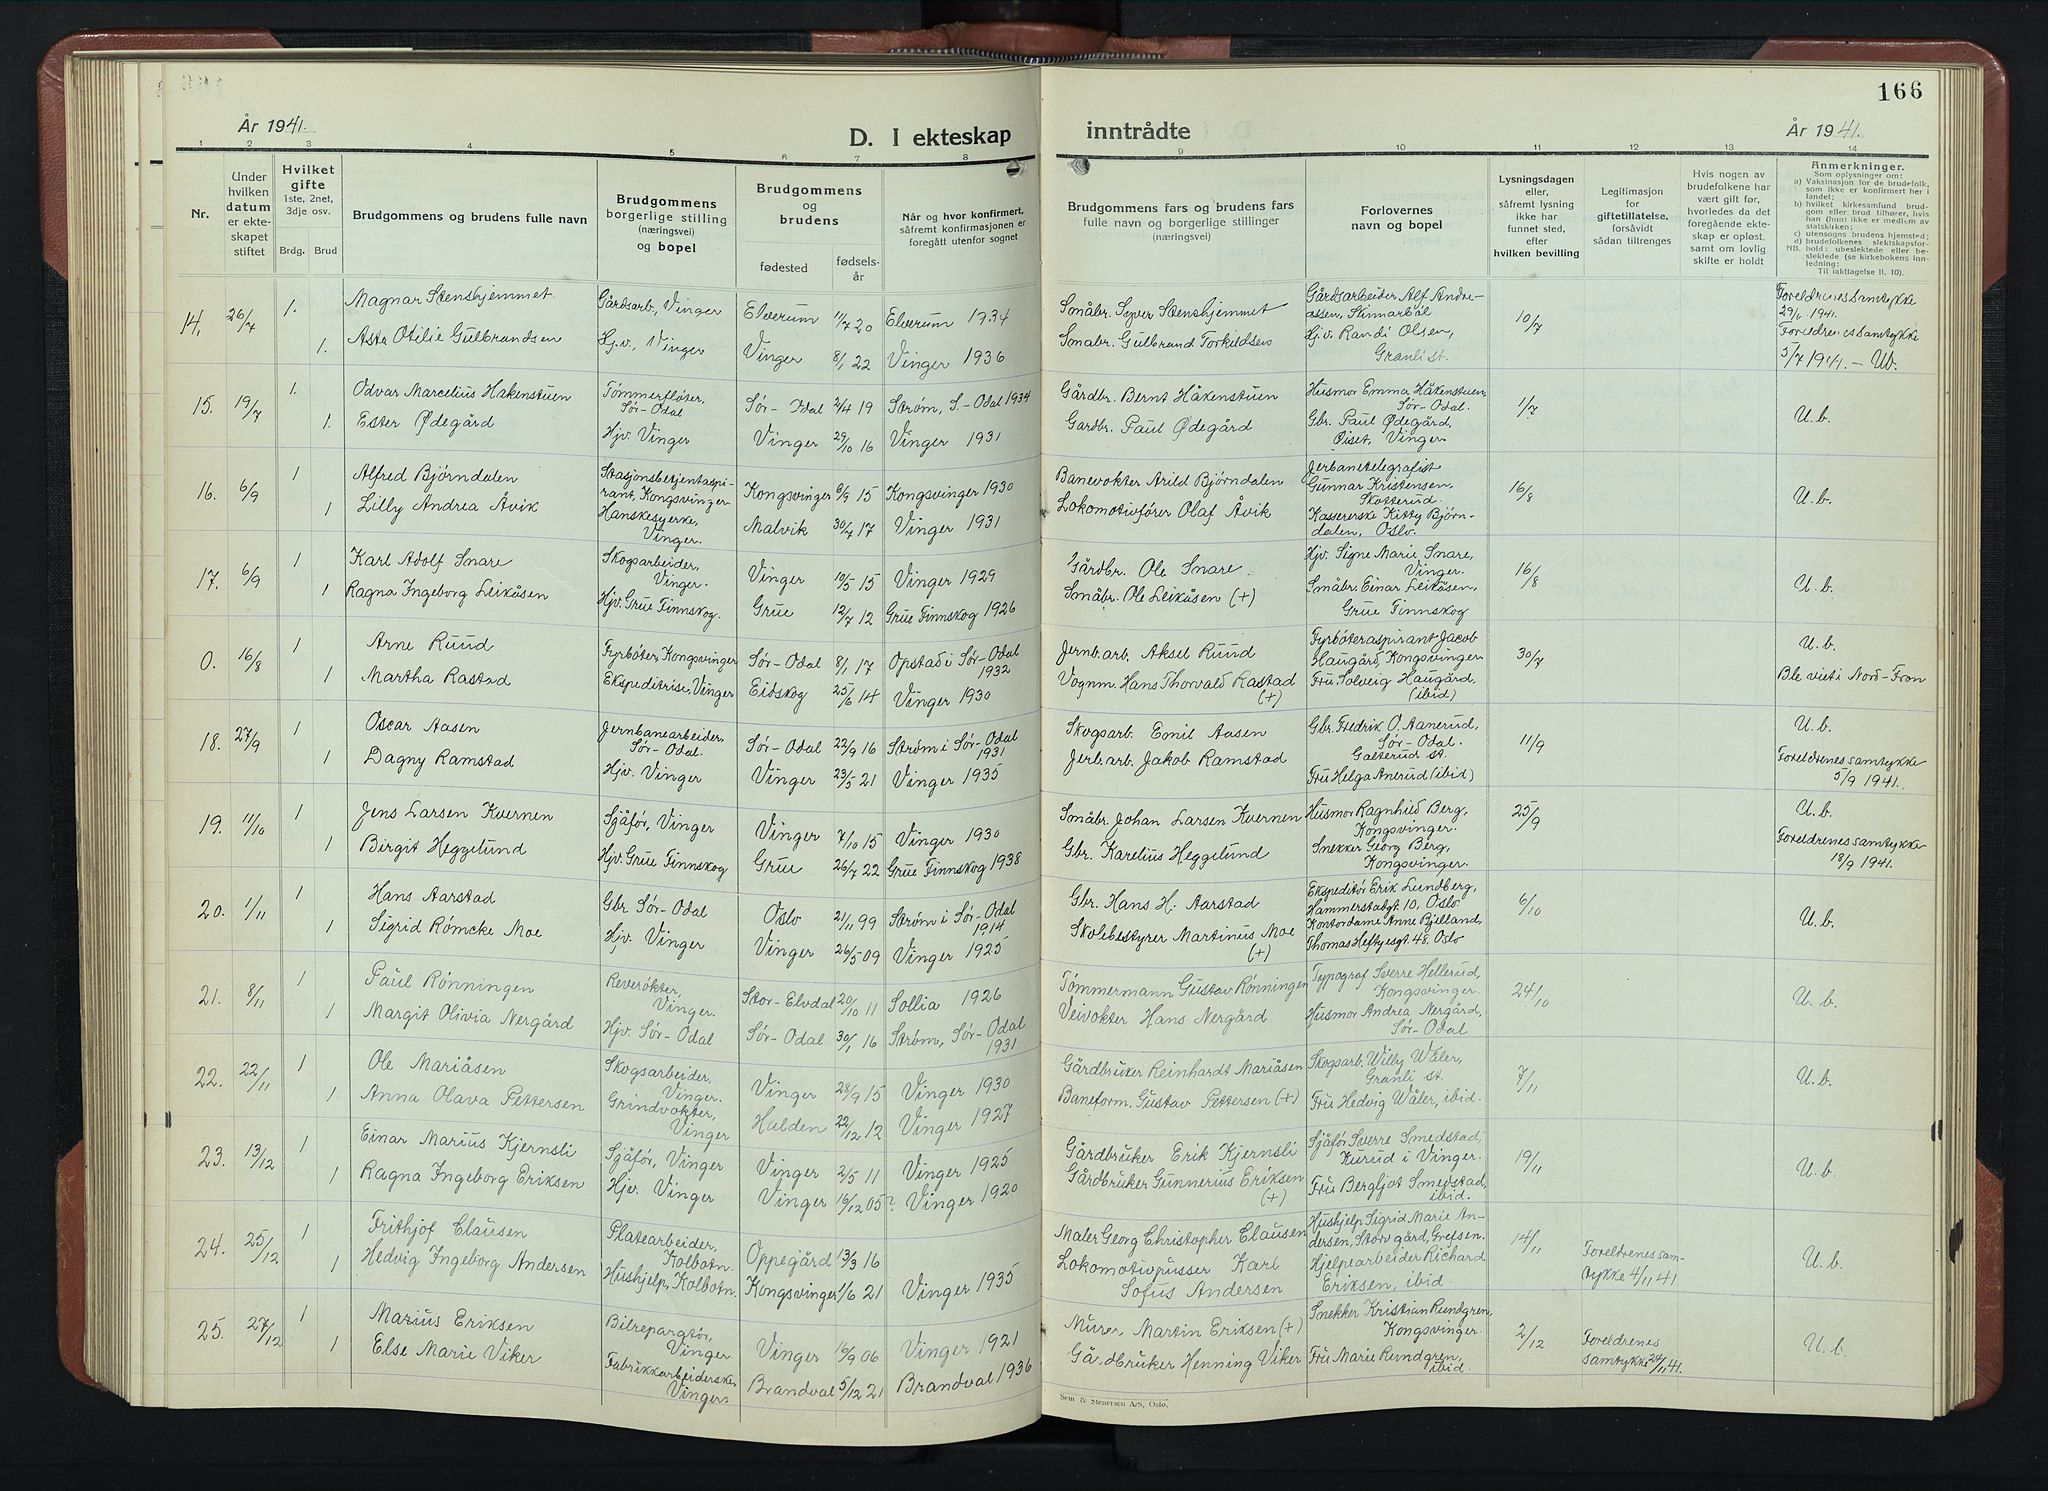 166
År 1941.
D. I ekteskap inntrådte
År 1941.
1 2 3 4 5 6 7 8 9 10 11 12 13 14
Nr.
Under hvilken datum er ekteskapet stiftet
Hvilket gifte 1ste, 2net, 3dje osv.
Brdg. Brud
Brudgommens og brudens fulle navn
Brudgommens borgerlige stilling (næringsvei) og bopel
Brudgommens og brudens
fødested
fødselsår
Når og hvor konfirmert, såfremt konfirmasjonen er foregått utenfor sognet
Brudgommens fars og brudens fars fulle navn og borgerlige stillinger (næringsvei)
Forlovernes navn og bopel
Lysningsdagen eller, såfremt lysning ikke har funnet sted, efter hvilken bevilling
Legitimasjon for giftetillatelse, forsåvidt sådan tiltrenges
Hvis nogen av brudefolkene har vært gift før, hvorledes da det foregående ekteskap er opløst, samt om lovlig skifte er holdt
Anmerkninger.
Som oplysninger om:
a) Vaksinasjon for de brudefolk, som ikke er konfirmert her i landet;
b) hvilket kirkesamfund brudgom eller brud tilhører, hvis han (hun) ikke er medlem av statskirken;
c) utensogns brudens hjemsted;
d) brudefolkenes slektskapsforhold: ubeslektede eller beslektede (se kirkebokens innledning:
NB.
Til iakttagelse II. 10).
14. 26/7 1. Magnar Stenshjemmet Gårdsarb, Vinger Elverum 11/7 20 Elverum 1934 Småbr. Syver Stenshjemmet Gårdsarbeider Alf Andreassen, Slimarbøl 10/7 Foreldrenes samtykke 29/6 1941.
1. Asta Otilie Gulbrandsen Hj.v., Vinger Vinger 8/1 22 Vinger 1936 Småbr. Gulbrand Torkildsen Hj.v. Randi Olsen, Granli st. Foreldrenes samtykke 5/7 1941. – Ub.
15. 19/7 1. Odvar Marcelius Hakenstuen Tømmerfløter, Sør-Odal Sør-Odal 2/4 19 Strøm, S.-Odal 1934 Gårdbr. Bernt Håkenstuen Husmor Emma Håkenstuen Sør-Odal. 1/7 U.b.
1. Ester Ødegård Hjv. Vinger Vinger 29/10 16 Vinger 1931 Gardbr. Paul Ødegård Gbr. Paul Ødegård, Øiset, Vinger
16. 6/9 1 Alfred Bjørndalen Stasjonsbetjentaspirant, Kongsvinger Kongsvinger 6/9 15 Kongsvinger 1930 Banevokter Arild Bjørndalen Jerbanetelegrafist Gunnar Kristensen, Skotterud. 16/8 U.b.
1 Lilly Andrea Åvik Hanskesyerke, Vinger. Malvik 30/4 17 Vinger 1931 Lokomotivfører Olaf Åvik Kassererske Kitty Bjørndalen, Oslo.
17. 6/9 1 Karl Adolf Snare Skogsarbeider, Vinger. Vinger 10/5 15 Vinger 1929 Gårdbr. Ole Snare. Hjv. Signe Marie Snare, Vinger. 16/8 U.b.
1 Ragna Ingeborg Leikåsen Hjv. Grue Finnskog. Grue 12/7 12 Grue Finnskog 1926 Småbr. Ole Leikåsen (+) Småbr. Einar Leikåsen, Grue Finnskog
0. 16/8 1 Arne Ruud Fyrbøter, Kongsvinger Sør-Odal 8/1 17 Opstad i Sør-Odal 1932 Jernb.arb. Aksel Ruud Fyrbøteraspirant Jacob Haugård, Kongsvinger 30/7 U.b.
1 Martha Rastad Ekspeditrise, Vinger Eidskog 25/6 14 Vinger 1930 Vognm. Hans Thorvald Rastad (+) Fru Solveig Haugård, (ibid) Ble viet i Nord-Fron
18. 27/9 1 Oscar Aasen Jernbanearbeider, Sør-Odal. Sør-Odal 22/9 16 Strøm i Sør-Odal 1931 Skogsarb. Emil Aasen Gbr. Fredrik O. Aanerud, Sør-Odal. Galterud st. 11/9 U.b.
1 Dagny Ramstad Hjv. Vinger Vinger 23/5 21 Vinger 1935 Jerb.arb. Jakob Ramstad Fru Helga Anerud (ibid) Foreldrenes samtykke 5/9 1941.
19. 11/10 1 Jens Larsen Kvernen Sjåfør, Vinger Vinger 7/10 15 Vinger 1930 Småbr. Johan Larsen Kvernen Husmor Ragnhild Berg, Kongsvinger. 25/9 U.b.
1 Birgit Heggelund Hjv. Grue Finnskog Grue 26/7 22 Grue Finnskog 1938 Gbr. Karelius Heggelund Snekker Georg Berg, Kongsvinger. Foreldrenes samtykke 18/9 1941.
20. 1/11 1 Hans Aarstad Gbr. Sør-Odal Oslo 21/11 99 Strøm i Sør-Odal 1914 Gbr. Hans H. Aarstad Ekspeditør Erik Lundberg, Hammerstabgt. 10, Oslo 6/10 U.b.
1 Sigrid Rømcke Moe Hjv. Vinger Vinger 26/5 09 Vinger 1925 Skolebestyrer Martinus Moe (+) Kontordame Anne Bjelland, Thomas Heftyesgt. 48, Oslo
21. 8/11 1 Paul Rønningen Reverøkter, Vinger. Stor-Elvdal 20/10 11 Sollia 1926 Tømmermann Gustav Rønningen Typograf Sverre Hellerud, Kongsvinger 24/10 U.b.
1 Margit Olivia Nergård Hjv. Sør-Odal Sør-Odal 30/1 16 Strøm, Sør-Odal 1931 Veivokter Hans Nergård Husmor Andrea Nergård, Sør-Odal
22. 22/11 1 Ole Mariåsen Skogsarbeider, Vinger. Vinger 28/9 15 Vinger 1930 Gårdbruker Reinhardt Mariåsen Skogsarb. Willy Wåler, Granli st. 7/11 U.b.
1 Anna Olava Pettersen Grindvokter, Vinger Halden 22/12 12 Vinger 1927 Baneform. Gustav Pettersen (+) Fru Hedvig Wåler, ibid.
23. 13/12 1 Einar Marius Kjernsli Sjåfør, Vinger Vinger 2/5 11 Vinger 1925 Gårdbruker Erik Kjernsli Sjåfør Sverre Smedstad, Kurud i Vinger. 19/11 U.b.
1 Ragna Ingeborg Eriksen Hjv. Vinger Vinger 16/12 05? Vinger 1920 Gårdbruker Gunnerius Eriksen (+) Fru Bergljot Smedstad, ibid.
24. 25/12 1 Frithjof Clausen Platearbeider, Kolbotn. Oppegård 13/3 16 Maler Georg Christopher Clausen Hushjelp Sigrid Marie Andersen, Storv gård, Grefsen. 14/11 Foreldrenes samtykke 4/11 41 U.b.
1 Hedvig Ingeborg Andersen Hushjelp, Kolbotn. Kongsvinger 1/6 21 Vinger 1935 Lokomotivpusser Karl Sofus Andersen Hjelpearbeider Richard Eriksen, ibid.
25. 27/12 1 Marius Eriksen Bilreparatør, Vinger Vinger 16/9 06 Vinger 1921 Murer Martin Eriksen (+) Snekker Kristian Rundgren, Kongsvinger 2/12 Foreldrenes samtykke 24/11 41. U.b.
1 Else Marie Viker Fabrikkarbeiderske Vinger. Brandval 5/12 21 Brandval 1936 Gårdbruker Henning Viker Fru Marie Rundgren, ibid.
Sem & Stenersen A/S, Oslo.